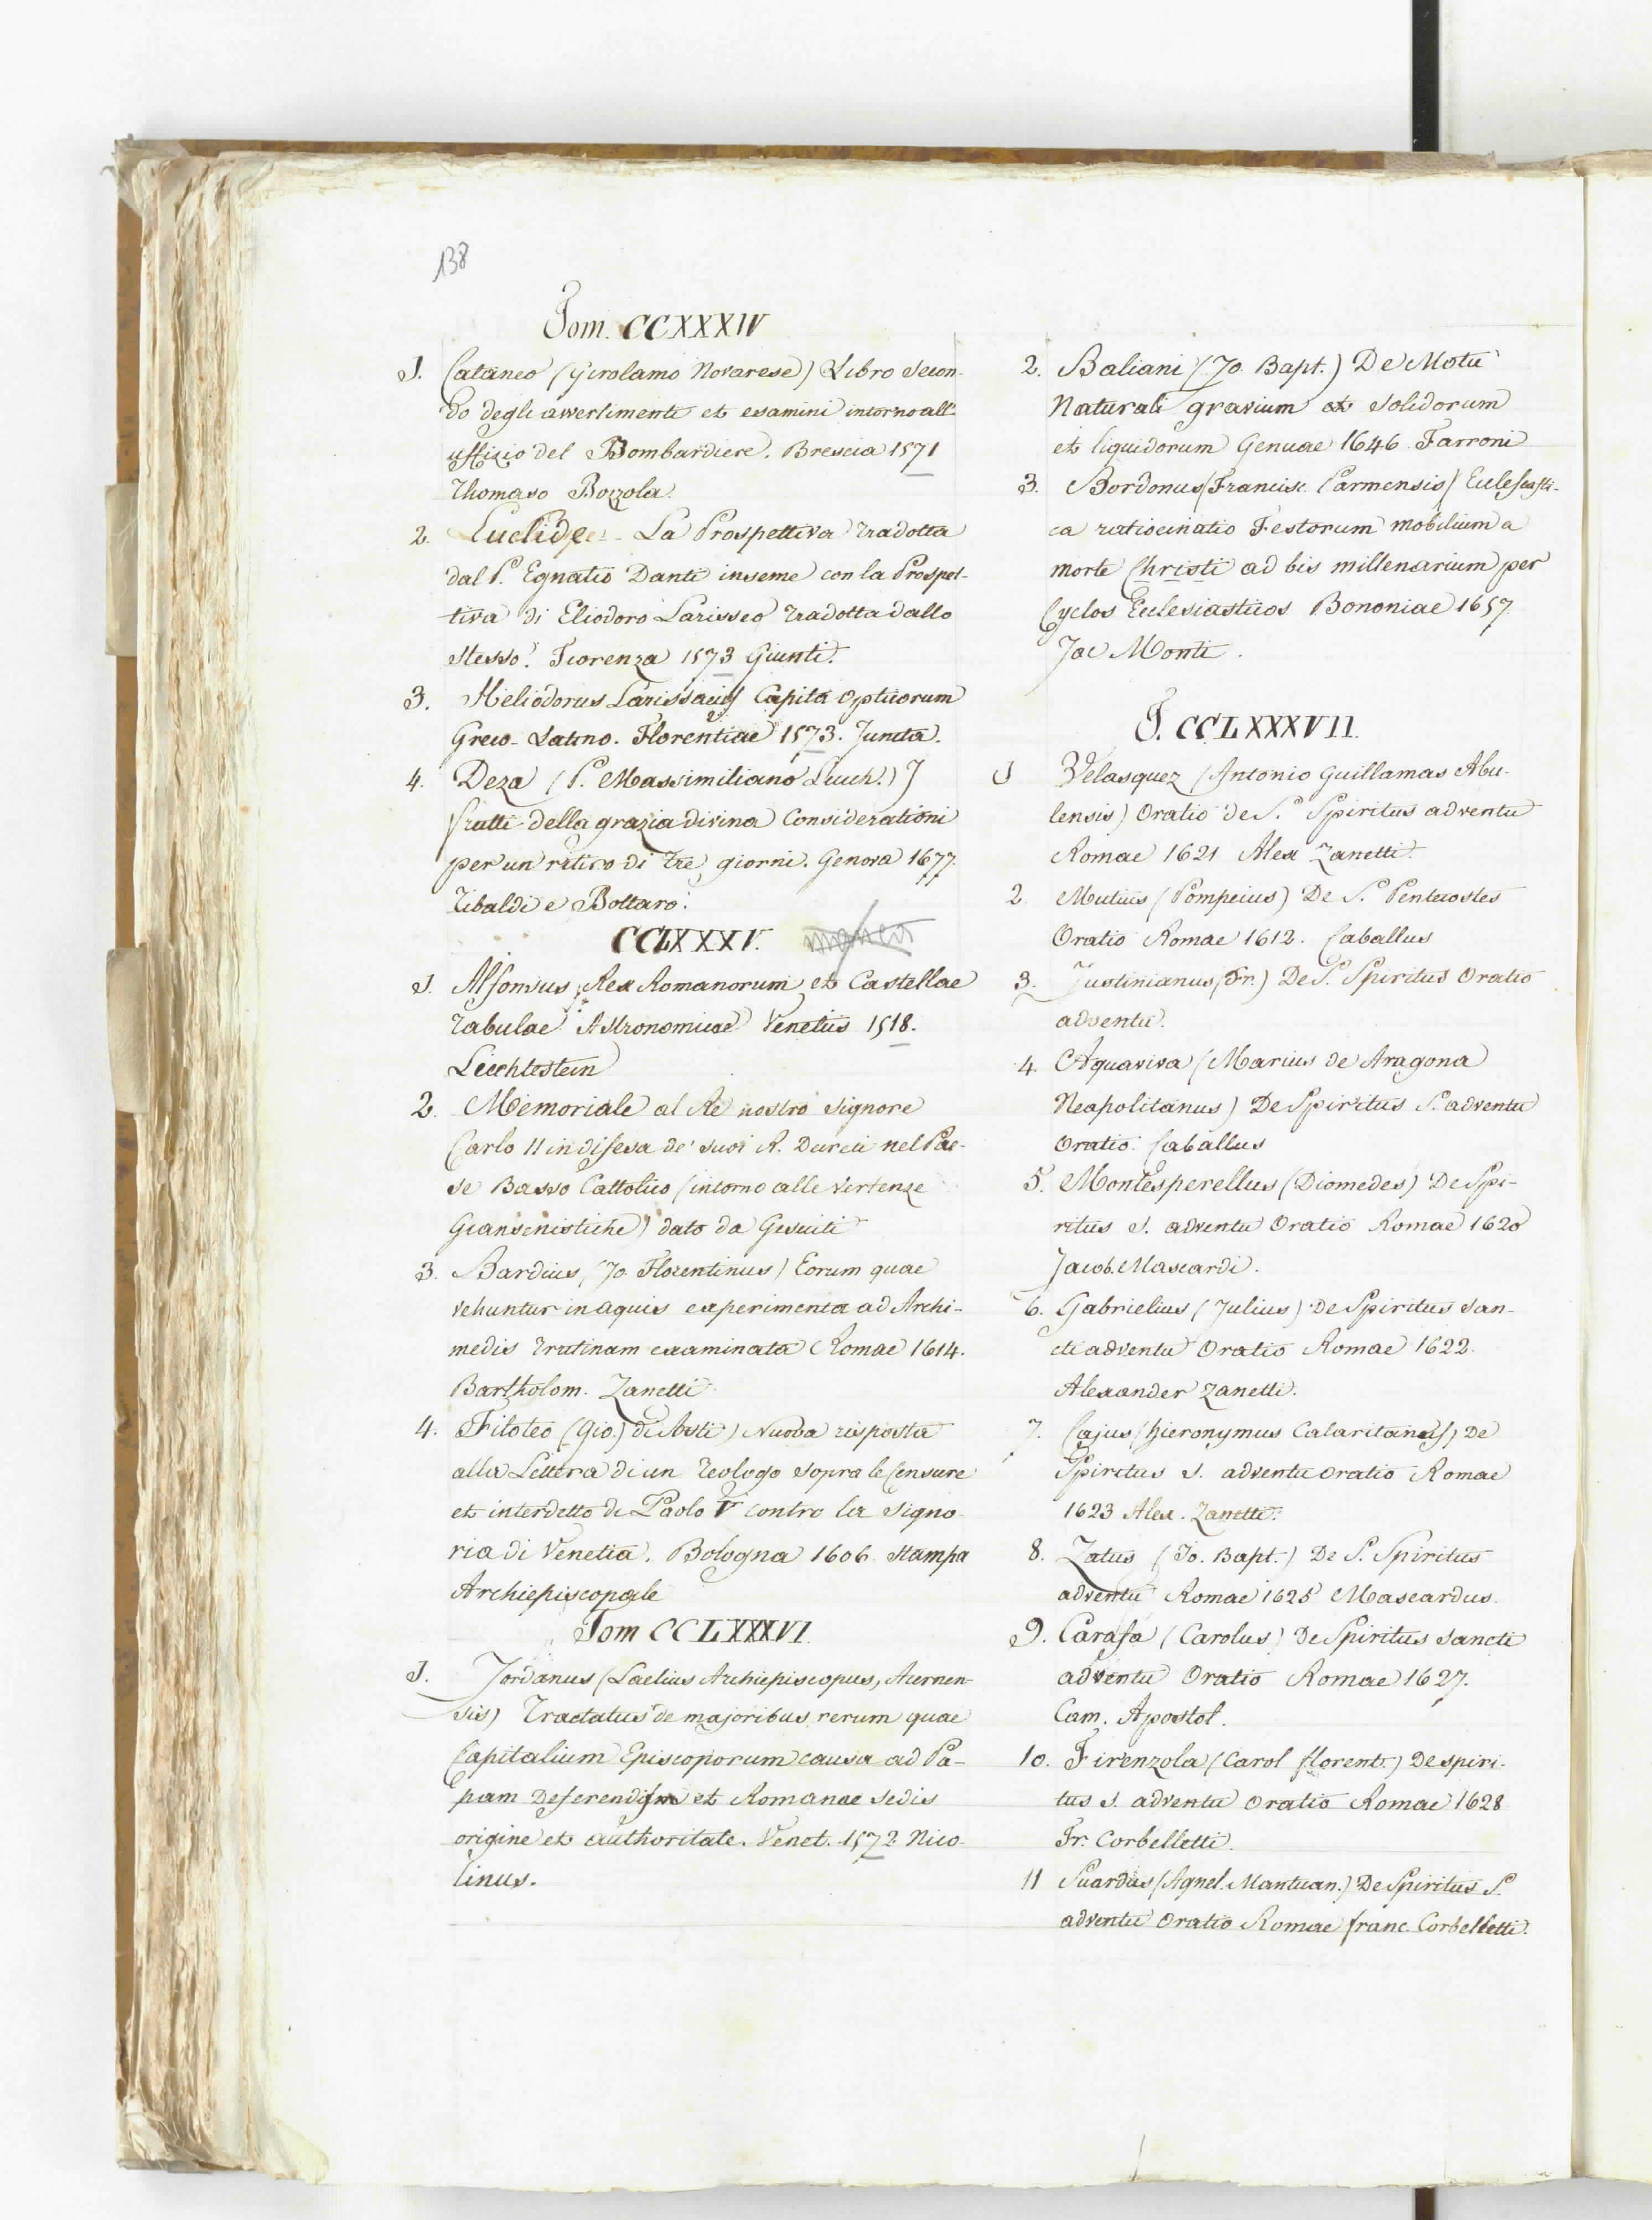 138
Tom. CCXXXIV
1. Cataneo (Girolamo Novarese) Libro Secon-
do degli avvertimenti et esamini intorno all'
uffizio del Bombardiere. Brescia 1571
Thomaso Bozzola.
2. Euclide - La Prospettiva tradotta
dal P. Egnatio Danti inseme con la Prospet-
tiva di Eliodoro Larisseo tradotta dallo
stesso. Fiorenza 1573 Giunti.
3. Heliodorus Larissaeus Capita opticorum
Greco-Latino. Florentiae 1573. Juncta.
4. Deza (P. Massimiliano Lucch.) I
frutti della grazia divina Considerationi
per un ritiro di tre giorni. Genova 1677.
Tibaldi e Bottaro.
CCLXXXV. manca
1. Alfonsus, Rex Romanorum et Castellae
Tabulae Astronomicae Venetiis 1518.
Liechtestein
2. Memoriale al Re nostro Signore
Carlo II in difesa de' suoi R. Dureti nel Pae-
se Basso Cattolico (intorno alle vertenze
Giansenistiche) dato da Gesuiti
3. Bardius (Jo. Florentinus) Eorum quae
vehuntur in aquis experimenta ad Archi-
medis trutinam examinata Romae 1614.
Bartholom. Zanetti
4. Filoteo (Gio.) di Asti) Nuova risposta
alla Lettera di un Teologo sopra le Censure
et interdetto di Paolo V contro la Signo
ria di Venetia. Bologna 1606. Stampa
Archiepiscopale
Tom CCLXXXVI
1. Jordanus (Laelius Archiepiscopus, Acernen-
sis) Tractatus de majoribus rerum quae
Capitalium Episcoporum causa ad Pa-
pam deferendis et Romanae sedis
origine et authoritate. Venet. 1572 Nico-
linus.
2. Baliani (Jo. Bapt.) De Motu
Naturali gravium et Solidorum
et liquidorum Genuae 1646 Farroni
3. Bordonus (Francisc. Parmensis) Ecclesiasti-
ca ratiocinatio Festorum mobilium a
morte Christi ad bis millenarium per
Cyclos Ecclesiasticos Bononiae 1657.
Jac Monti.
T. CCLXXXVII.
1 Velasquez (Antonio Guillamas Abu-
lensis) Oratio de S. Spiritus adventu
Romae 1621 Alex Zanetti.
2. Mutius (Pompeius) De S. Pentecostes
Oratio Romae 1612. Caballus
3. Justinianus (Fr.) De S. Spiritus Oratio
adventu.
4. Aquaviva (Marius de Aragona
Neapolitanus) De Spiritus S. adventu
Oratio. Caballus
5. Montesperellus (Diomedes) De Spi-
ritus S. adventu Oratio Romae 1620
Jacob. Mascardi.
6. Gabrielius (Julius) De Spiritus San-
cti adventu Oratio Romae 1622.
Alexander Zanetti.
7. Cajus (Hieronymus Calaritanus) De
Spiritus S. adventu oratio Romae
1623 Alex. Zanetti.
8. Zatus (Jo. Bapt.) De S. Spiritus
adventu Romae 1625 Mascardus.
9. Carafa (Carolus) De Spiritus Sancti
adventu Oratio Romae 1627.
Cam. Apostol.
10. Firenzola (Carol florent.) De spiri-
tus S. adventu Oratio Romae 1628
Fr. Corbelletti.
11 Suardus (Agnel. Mantuan.) De Spiritus S.
adventu Oratio Romae franc. Corbelletti.